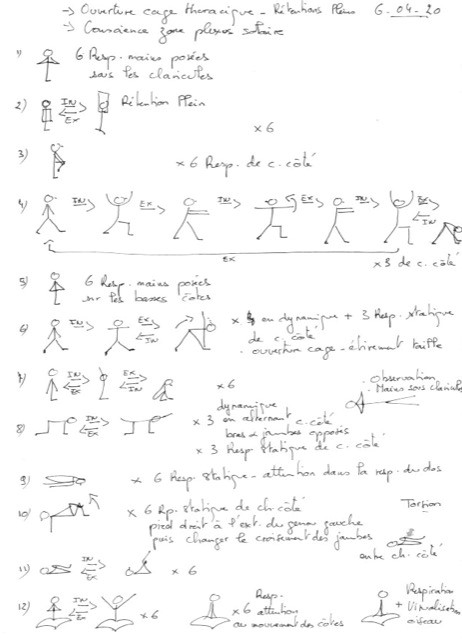 → Ouverture cage thoracique - Rétentions Plein 6-04-20
→ Conscience zone plexus solaire
1) 6 Resp. mains posées
sous les clavicules
2) IN EX Rétention Plein
x 6
3) x 6 Resp. de c. côté
4) IN EX IN EX IN EX IN
EX
x 3 de c. côté
5) 6 Resp. mains posées
sur les basses côtes
6) IN EX x 3 en dynamique + 3 Resp. statique
de c. côté
. ouverture cage - étirement taille
7) IN EX EX IN x 6
dynamique
. Observation
. Mains sous clavicules
8) IN EX x 3 en alternant c. côté
bras & jambes opposés
x 3 Resp. Statique de c. côté
9) x 6 Resp. Statique - attention dans la resp. du dos
10) x 6 Rp. statique de ch. côté
pied droit à l'ext. du genou gauche
puis changer le croisement des jambes
Torsion
entre ch. côté
11) IN EX x 6
12) IN EX x 6
Resp.
x 6 attention
au mouvement des côtes
Respiration
+ Visualisation
oiseau